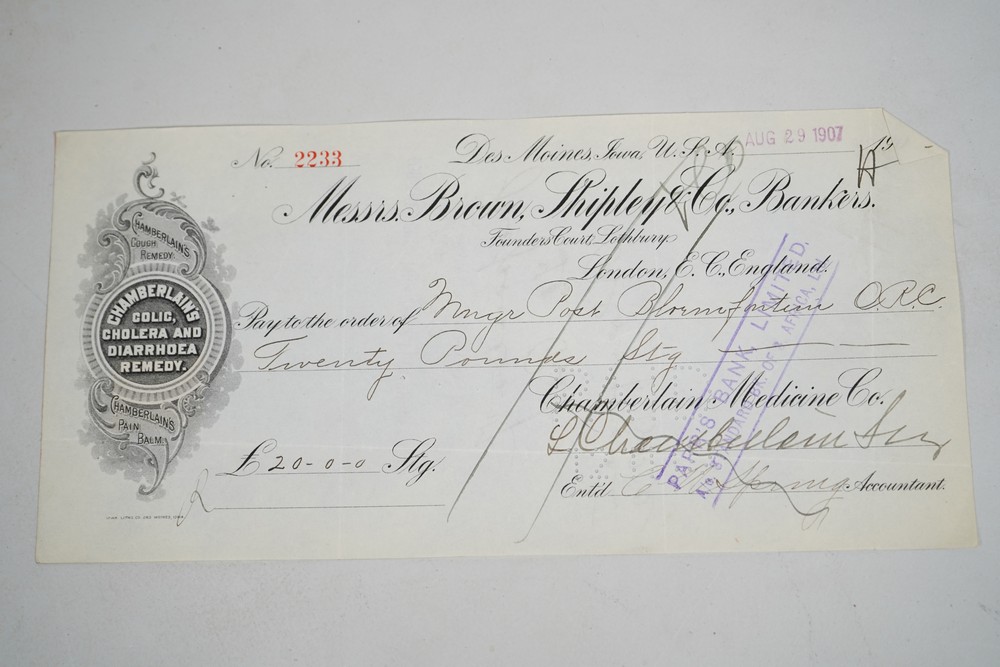 No. 2233
Des Moines, Iowa, U.S.A. AUG 29 1907 19
Messrs. Brown, Shipley & Co., Bankers.
Founders Court, Lothbury
London, E.C., England.
Pay to the order of Mngr Post Bloemfontein O.R.C.
Twenty Pounds Stg
Chamberlain Medicine Co.
£ 20-0-0 Stg.
L Chamberlain
Ent'd Accountant.
CHAMBERLAIN'S
COUGH
REMEDY.
CHAMBERLAIN'S
COLIC,
CHOLERA AND
DIARRHOEA
REMEDY.
CHAMBERLAIN'S
PAIN
BALM.
PARR'S BANK, LIMITED.
A/C STANDARD BK. OF S. AFRICA, LD.